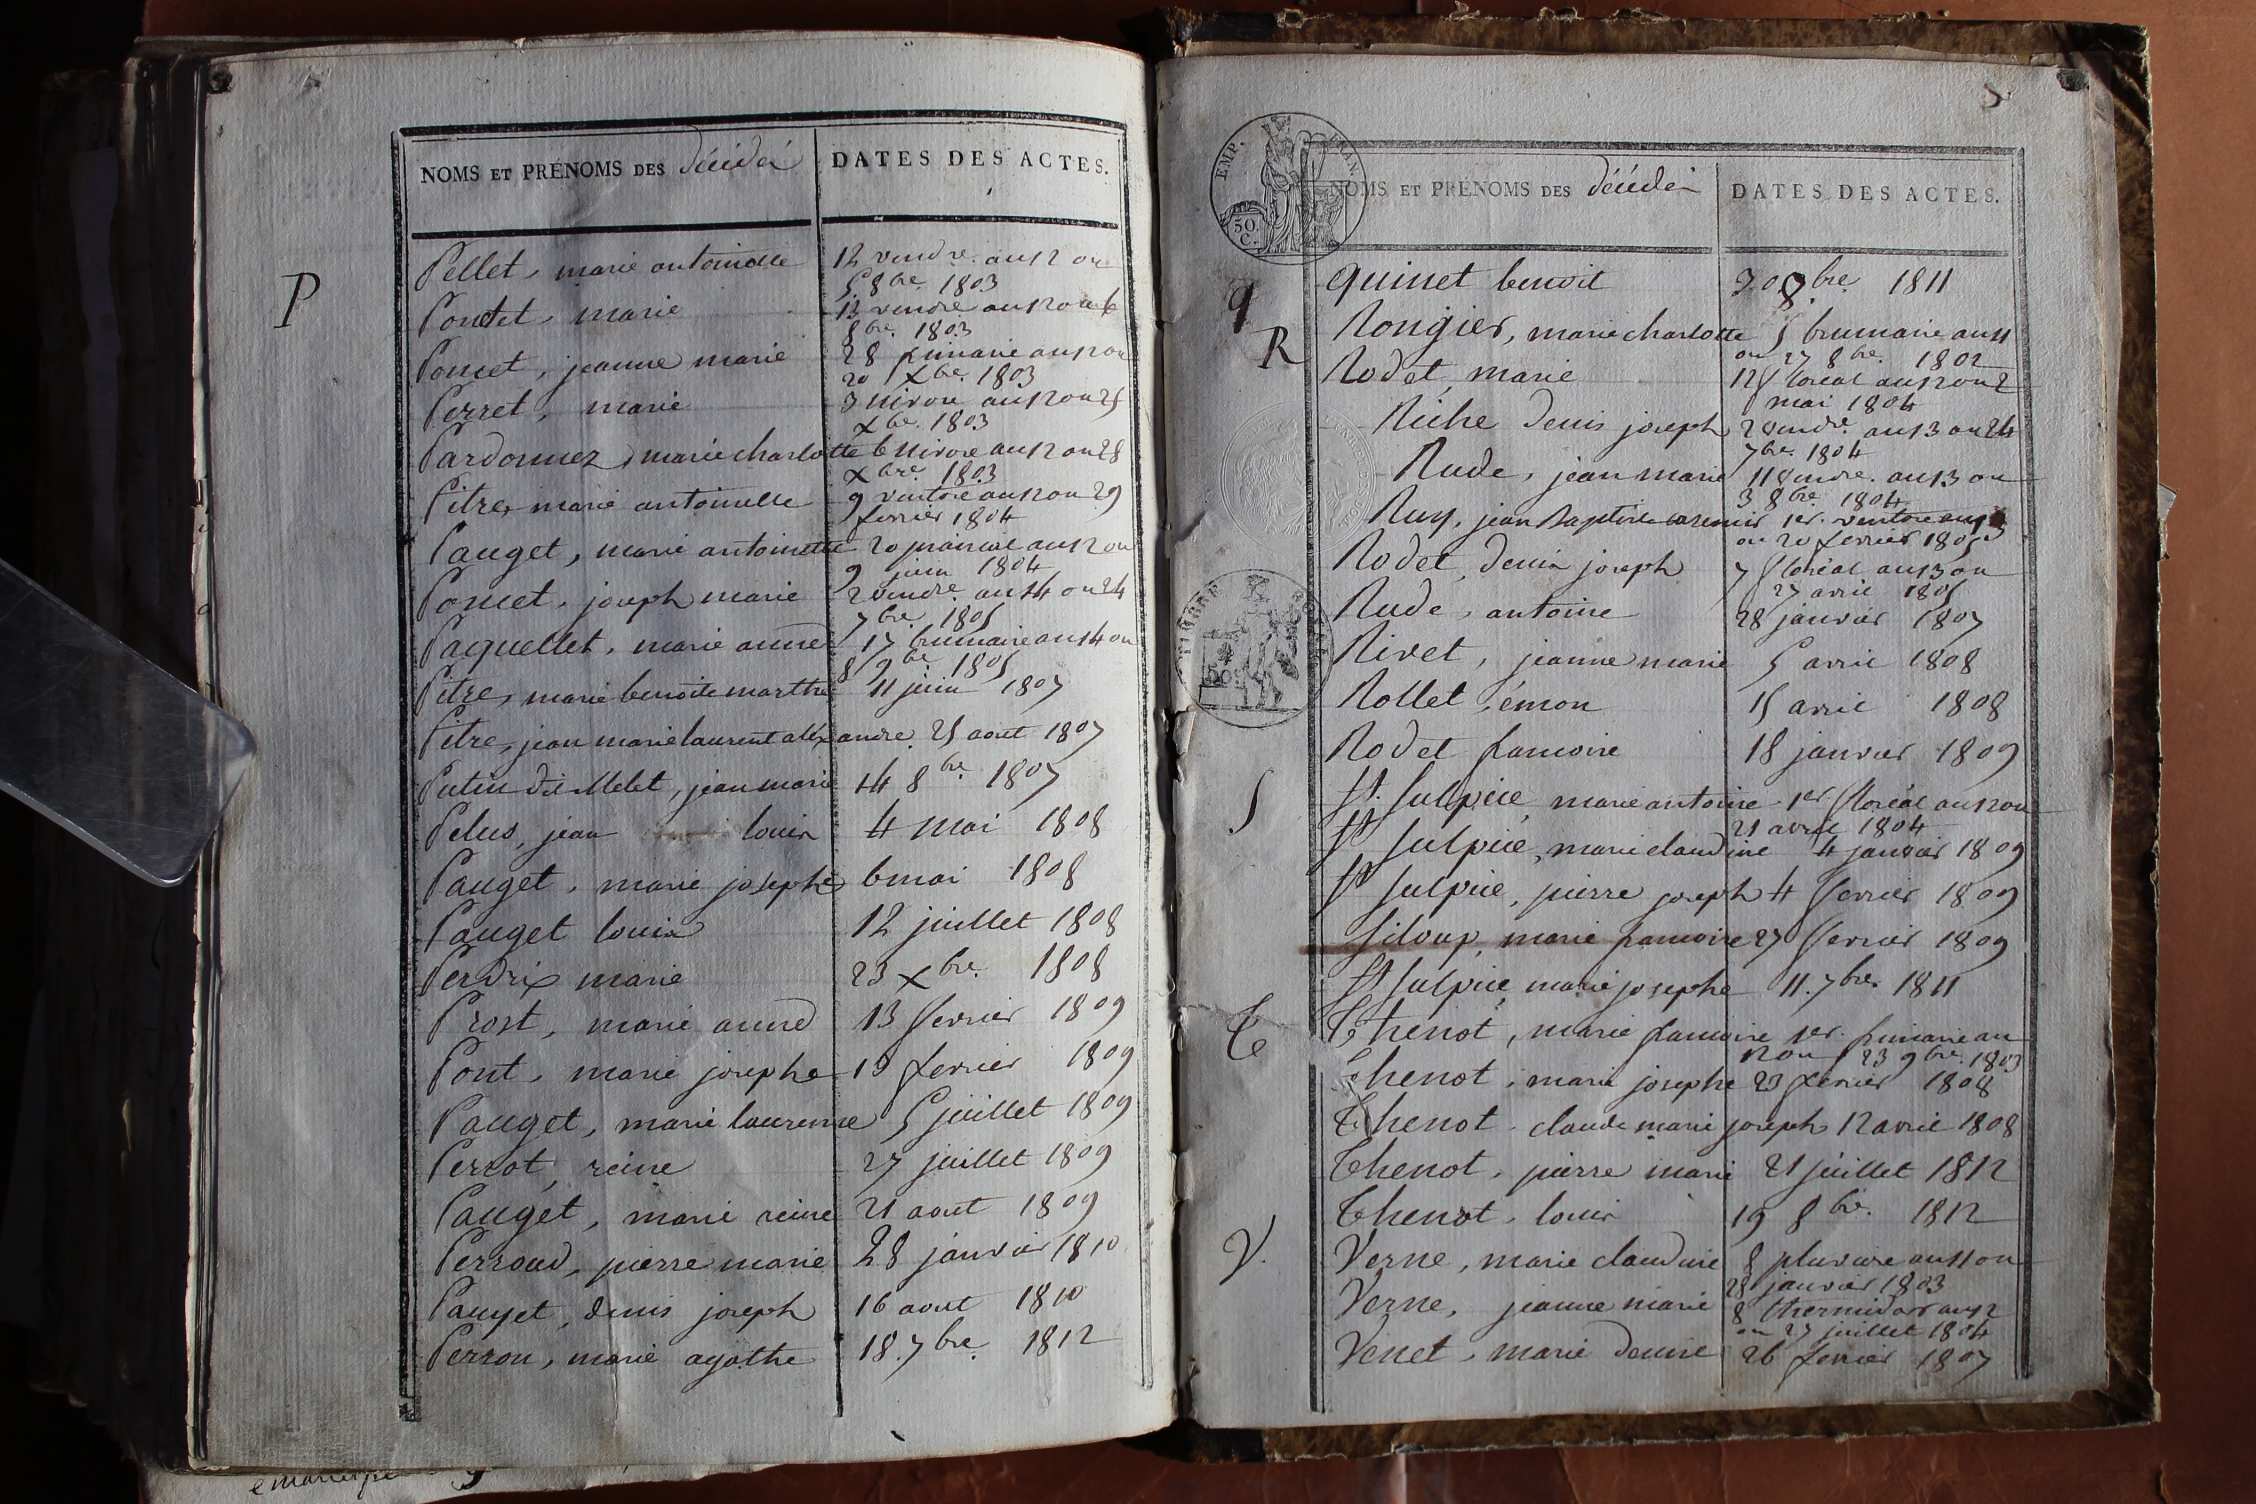 NOMS ET PRÉNOMS DES décédés
DATES DES ACTES.
P
Pellet, marie antoinette 12 vendre. an 12 ou
5 8bre 1803
Pontet, marie 13 vendre an 12 ou 6
8bre 1803
Poncet, jeanne marie 28 frimaire an 12 ou
20 Xbre. 1803
Perret, marie 3 nivose an 12 ou 25
Xbre. 1803
Pardonnez, marie charlotte 6 nivose an 12 ou 28
Xbre 1803
Pitre, marie antoinette 9 ventose an 12 ou 29
fevrier 1804
Pauget, marie antoinette 20 prairial an 12 ou
9 juin 1804
Poncet, joseph marie 2 vendre. an 14 ou 24
7bre. 1805
Paquellet, marie anne 17 brumaire an 14 ou
8 9bre 1805
Pitre, marie benoite marthe 11 juin 1807
Pitre, jean marie laurent alexandre 25 aout 1807
Putin dit Melet, jean marie 14 8bre 1807
Pelus, jean louis 4 mai 1808
Pauget, marie josephe 6 mai 1808
Pauget louis 12 juillet 1808
Perdrix marie 23 Xbre. 1808
Prost, marie anne 13 fevrier 1809
Pont, marie josephe 19 fevrier 1809
Pauget, marie laurence 5 juillet 1809
Perrot, reine 27 juillet 1809
Pauget, marie reine 21 aout 1809
Perroud, pierre marie 28 janvier 1810
Pauget, denis joseph 16 aout 1810
Perron, marie agathe 18. 7bre 1812
EMP. FRAN.
50.
C.
NOMS ET PRÉNOMS DES décédés
DATES DES ACTES.
q
quinet benoit 30 8bre 1811
R
Rongier, marie charlotte 5 brumaire an 11
ou 27 8bre. 1802
Rodet, marie 12 floréal an 12 ou 2
mai 1804
Riche denis joseph 2 vendre. an 13 ou 24
7bre. 1804
Rude, jean marie 11 vendre. an 13 ou
3 8bre 1804
Ruy, jean Baptiste casemir 1er. ventose an 13
ou 20 fevrier 1805
Rodet, denis joseph 7 floréal an 13 ou
27 avril 1805
TIMBRE
Rude, antoine 28 janvier 1807
Rivet, jeanne marie 5 avril 1808
Rollet, émon 15 avril 1808
Rodet francoise 18 janvier 1809
S
St. Sulpice, marie antoine 1er floréal an 12 ou
21 avril 1804
St Sulpice, marie claudine 4 janvier 1809
St Sulpice, pierre joseph 4 fevrier 1809
Siloup, marie francoise 27 fevrier 1809
St Sulpice, marie josephe 11. 7bre. 1811
T
Thenot, marie francoise 1er. frimaire an
12 ou 23 9bre. 1803
Thenot, marie josephe 23 fevrier 1808
Thenot, claude marie joseph 12 avril 1808
Thenot, pierre marie 21 juillet 1812
Thenot, louis 19 8bre. 1812
V.
Verne, marie claudine 8 pluviose an 11 ou
28 janvier 1803
Verne, jeanne marie 8 thermidor an 12
ou 27 juillet 1804
Venet, marie denise 26 fevrier 1807